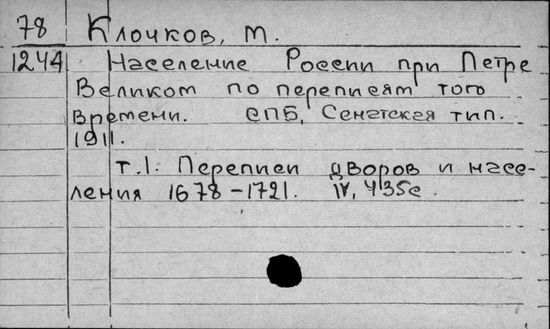 78 Клочков, М.
1244 Население России при Петре
Великом по переписям того
времени. СПБ, Сенатская тип.
1911.
т.1. Переписи дворов и насе-
ления 1678-1721. IV, 435с.